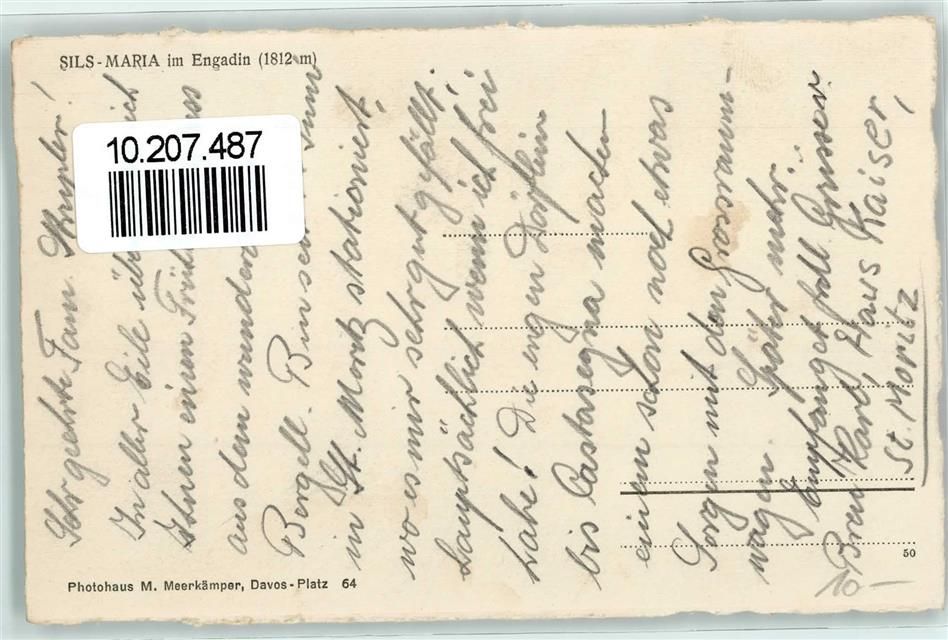 SILS-MARIA im Engadin (1812 m)
10.207.487
Sehr geehrte Fam.
In aller Eile
Ihnen einen
aus dem
Bergell. Bin
in St. Moritz stationiert,
wo es mir sehr gut gefällt.
hauptsächlich wenn ich frei
habe! Die engen Dörflein
bis Castasegna machen
einem schon noch etwas
Sorgen mit den Grossraum-
wagen. Später mehr.
Empfanget all Grüsse v.
Karl Haus Kaiser,
St. Moritz
Photohaus M. Meerkämper, Davos-Platz 64
50
10-